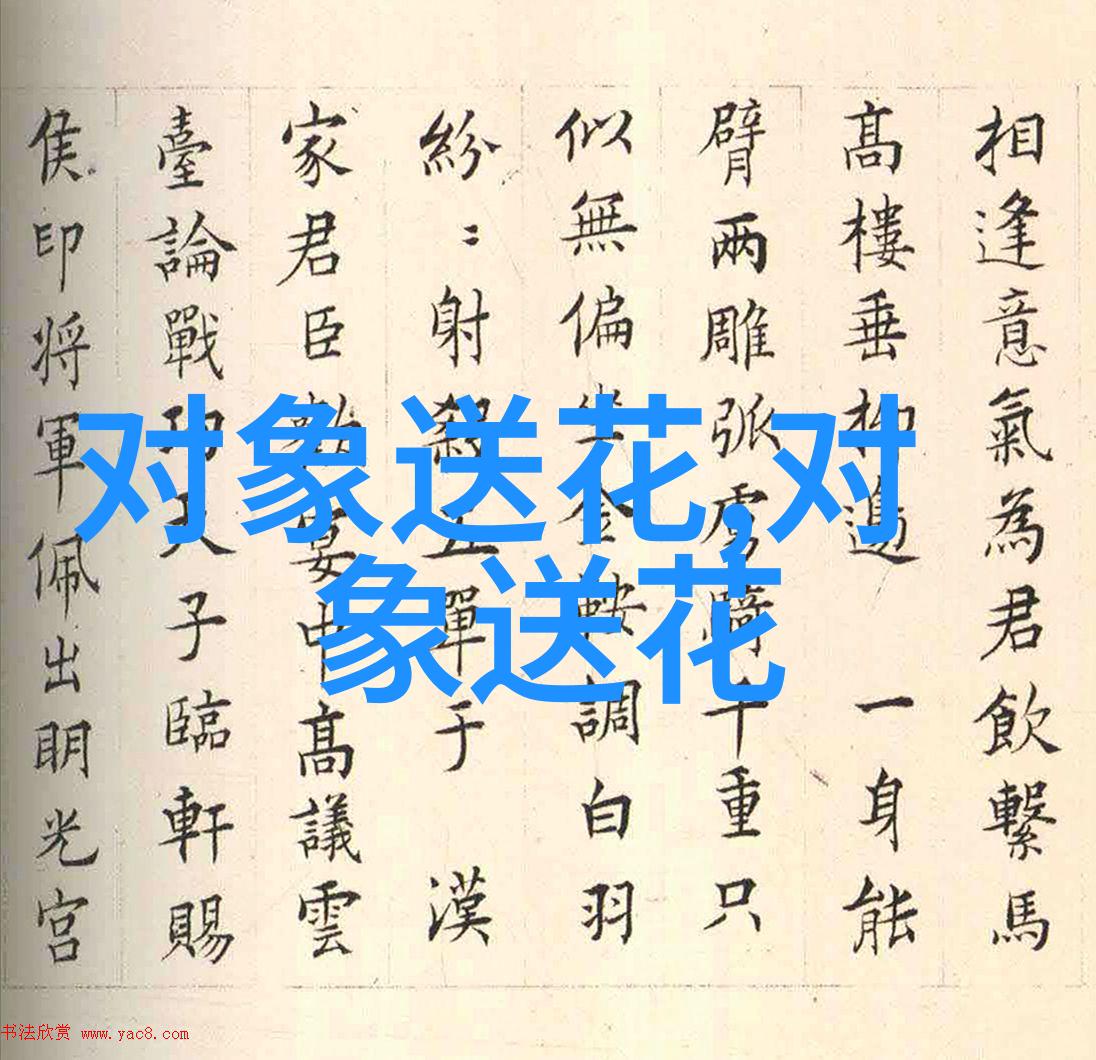 相逢意氣為君飲繫馬
高樓垂柳邊 一身能
臂兩雕弧虜騎千重只
似無偏坐金鞍調白羽
紛〻射殺五單于 漢
家君臣歡宴中高議雲
臺論戰功天子臨軒賜
侯印将軍佩出明光宮
对象送花,对
象送花
书法欣赏 www.yac8.com